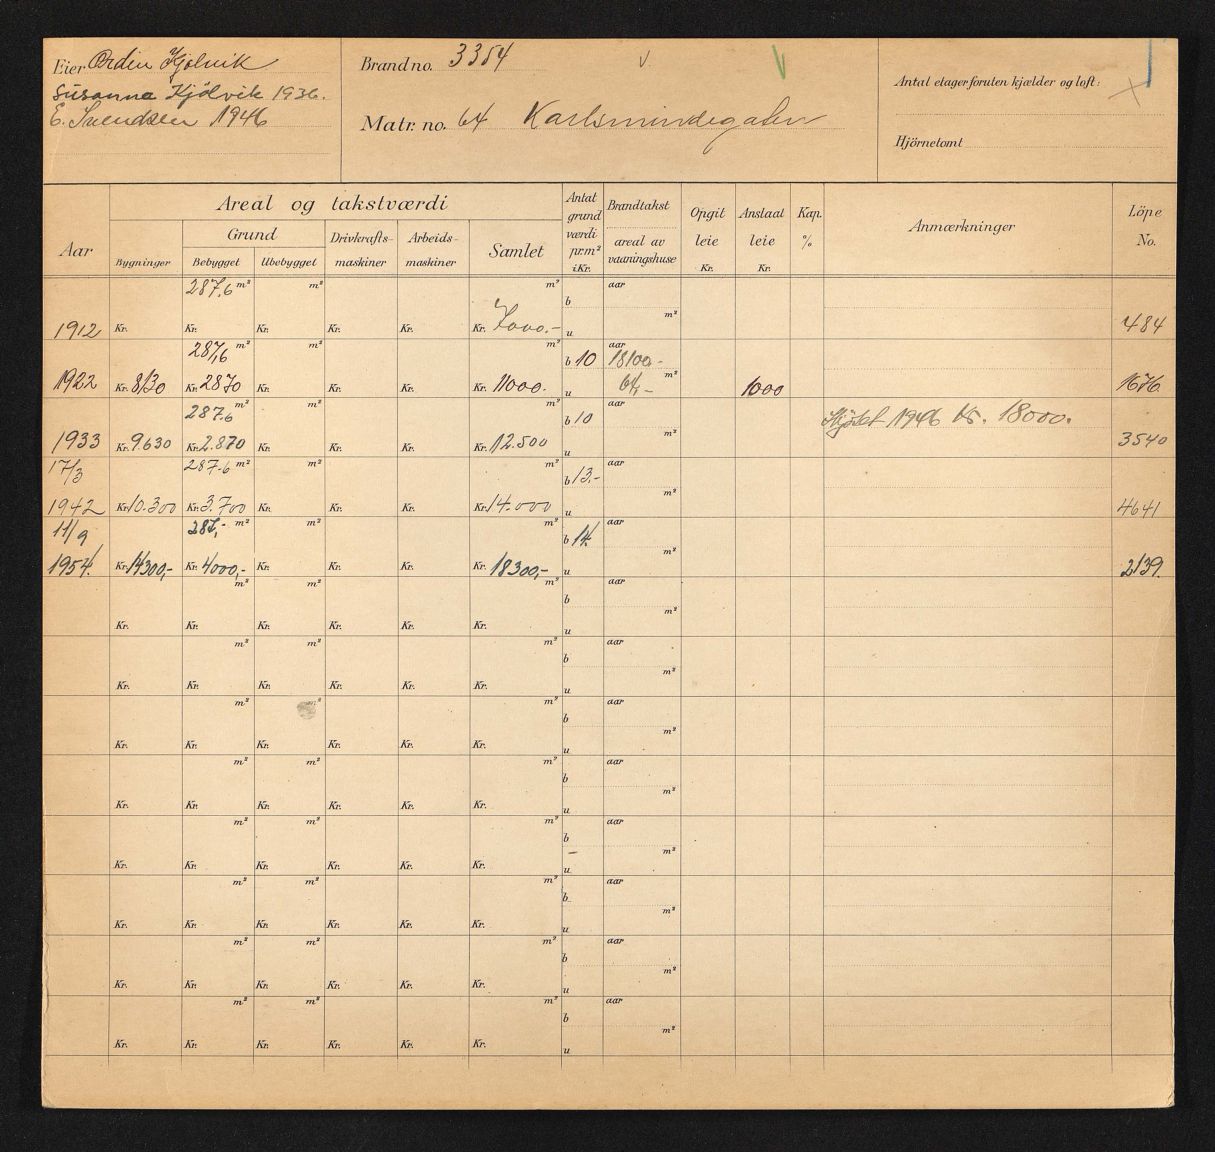 Eier Ordin Kjölvik
Susanna Kjölvik 1936.
E. Svendsen 1946
Brand no. 3354
Matr. no. 64 Karlsmindegaten
Antal etager foruten kjælder og loft:
Hjörnetomt
Aar
Areal og takstværdi
Grund
Bygninger Bebygget Ubebygget Drivkrafts-maskiner Arbeids-maskiner Samlet
Antat grundværdi pr. m² i Kr.
Brandtakst
areal av vaaningshuse
Opgit leie Kr.
Anslaat leie Kr.
Kap. %
Anmærkninger
Löpe No.
287.6 m² m² m² b aar
m²
1912 Kr. Kr. Kr. Kr. Kr. Kr. 7000.- u 484
287,6 m² m² m² b 10 aar 18100.-
64,- m²
1922 Kr. 8130 Kr. 2870 Kr. Kr. Kr. Kr. 11000.- u 1000 1676
287.6 m² m² m² b 10 aar Kjöbt 1946 Kr. 18000.
m²
1933 Kr. 9.630 Kr. 2.870 Kr. Kr. Kr. Kr. 12.500 u 3540
17/3 287.6 m² m² m² b 13.- aar
m²
1942 Kr. 10.300 Kr. 3.700 Kr. Kr. Kr. Kr. 14.000 u 4641
11/9 287,- m² m² m² b 14. aar
m²
1954. Kr. 14300,- Kr. 4000,- Kr. Kr. Kr. Kr. 18300,- u 2139.
m² m² m² b aar
m²
Kr. Kr. Kr. Kr. Kr. Kr. u
m² m² m² b aar
m²
Kr. Kr. Kr. Kr. Kr. Kr. u
m² m² m² b aar
m²
Kr. Kr. Kr. Kr. Kr. Kr. u
m² m² m² b aar
m²
Kr. Kr. Kr. Kr. Kr. Kr. u
m² m² m² b aar
m²
Kr. Kr. Kr. Kr. Kr. Kr. u
m² m² m² b aar
m²
Kr. Kr. Kr. Kr. Kr. Kr. u
m² m² m² b aar
m²
Kr. Kr. Kr. Kr. Kr. Kr. u
m² m² m² b aar
m²
Kr. Kr. Kr. Kr. Kr. Kr. u